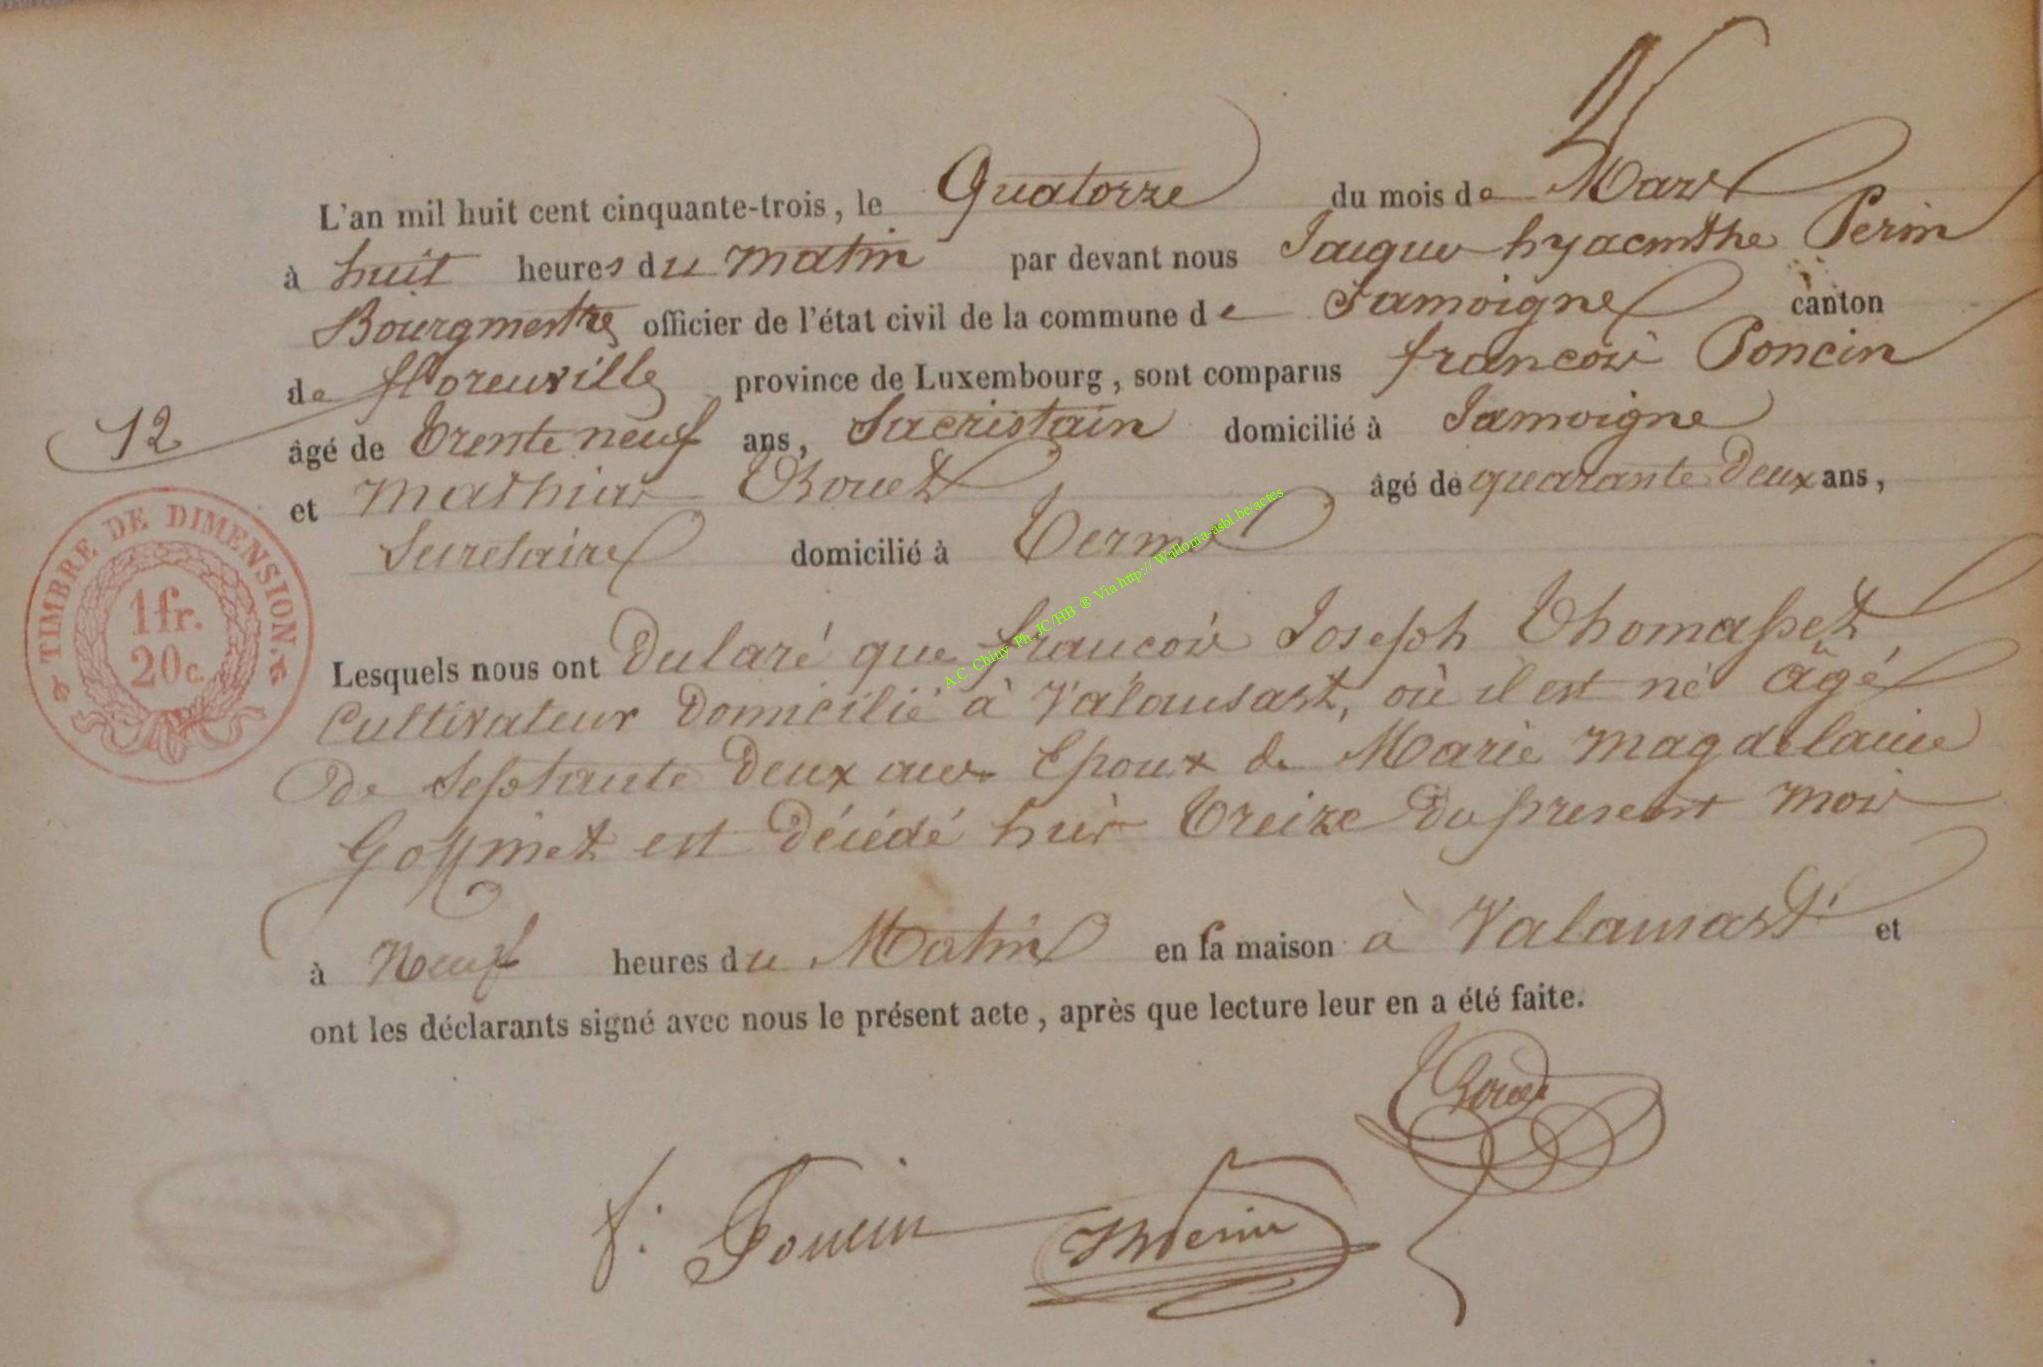 L'an mil huit cent cinquante-trois, le Quatorze du mois de Mars
à huit heures du matin par devant nous Jaque hyacinthe Perin
Bourgmestre officier de l'état civil de la commune de Jamoigne canton
de floreuville province de Luxembourg, sont comparus françois Poncin
12
âgé de Trente neuf ans, Sacristain domicilié à Jamoigne
et Mathias âgé de quarante Deux ans,
Secretaire domicilié à Termes
TIMBRE DE DIMENSION.
1 fr.
20 c.
A.C Chiny Ph. JC/HB ® Via http:// Wallonia-asbl.be/actes
Lesquels nous ont Déclaré que françois Joseph Thomasset,
Cultivateur Domicilié à Valansart, où il est né âgé
De Septante Deux ans Epoux de Marie Magdelaine
Goffinet est Décédé hier Treize Du présent mois
à Neuf heures du Matin en sa maison à Valansart et
ont les déclarants signé avec nous le présent acte, après que lecture leur en a été faite.
f: Poncin Perin